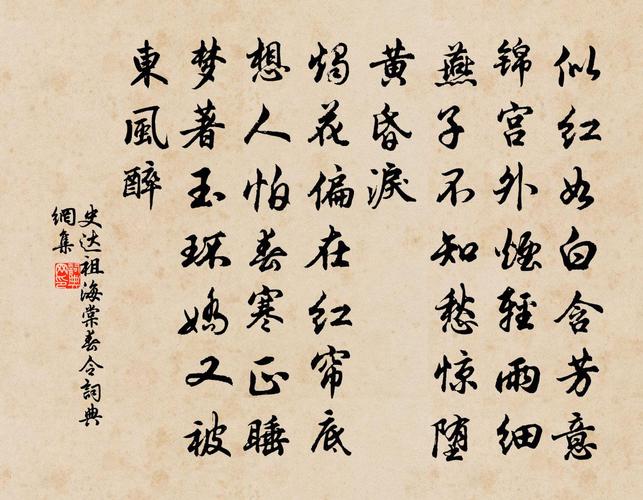 似红如白含芳意
锦宫外烟轻雨细
燕子不知愁惊堕
黄昏泪
烛花偏在红帘底
想人怕春寒正睡
梦著玉环娇又被
東風醉
史达祖海棠春令詞典
網集